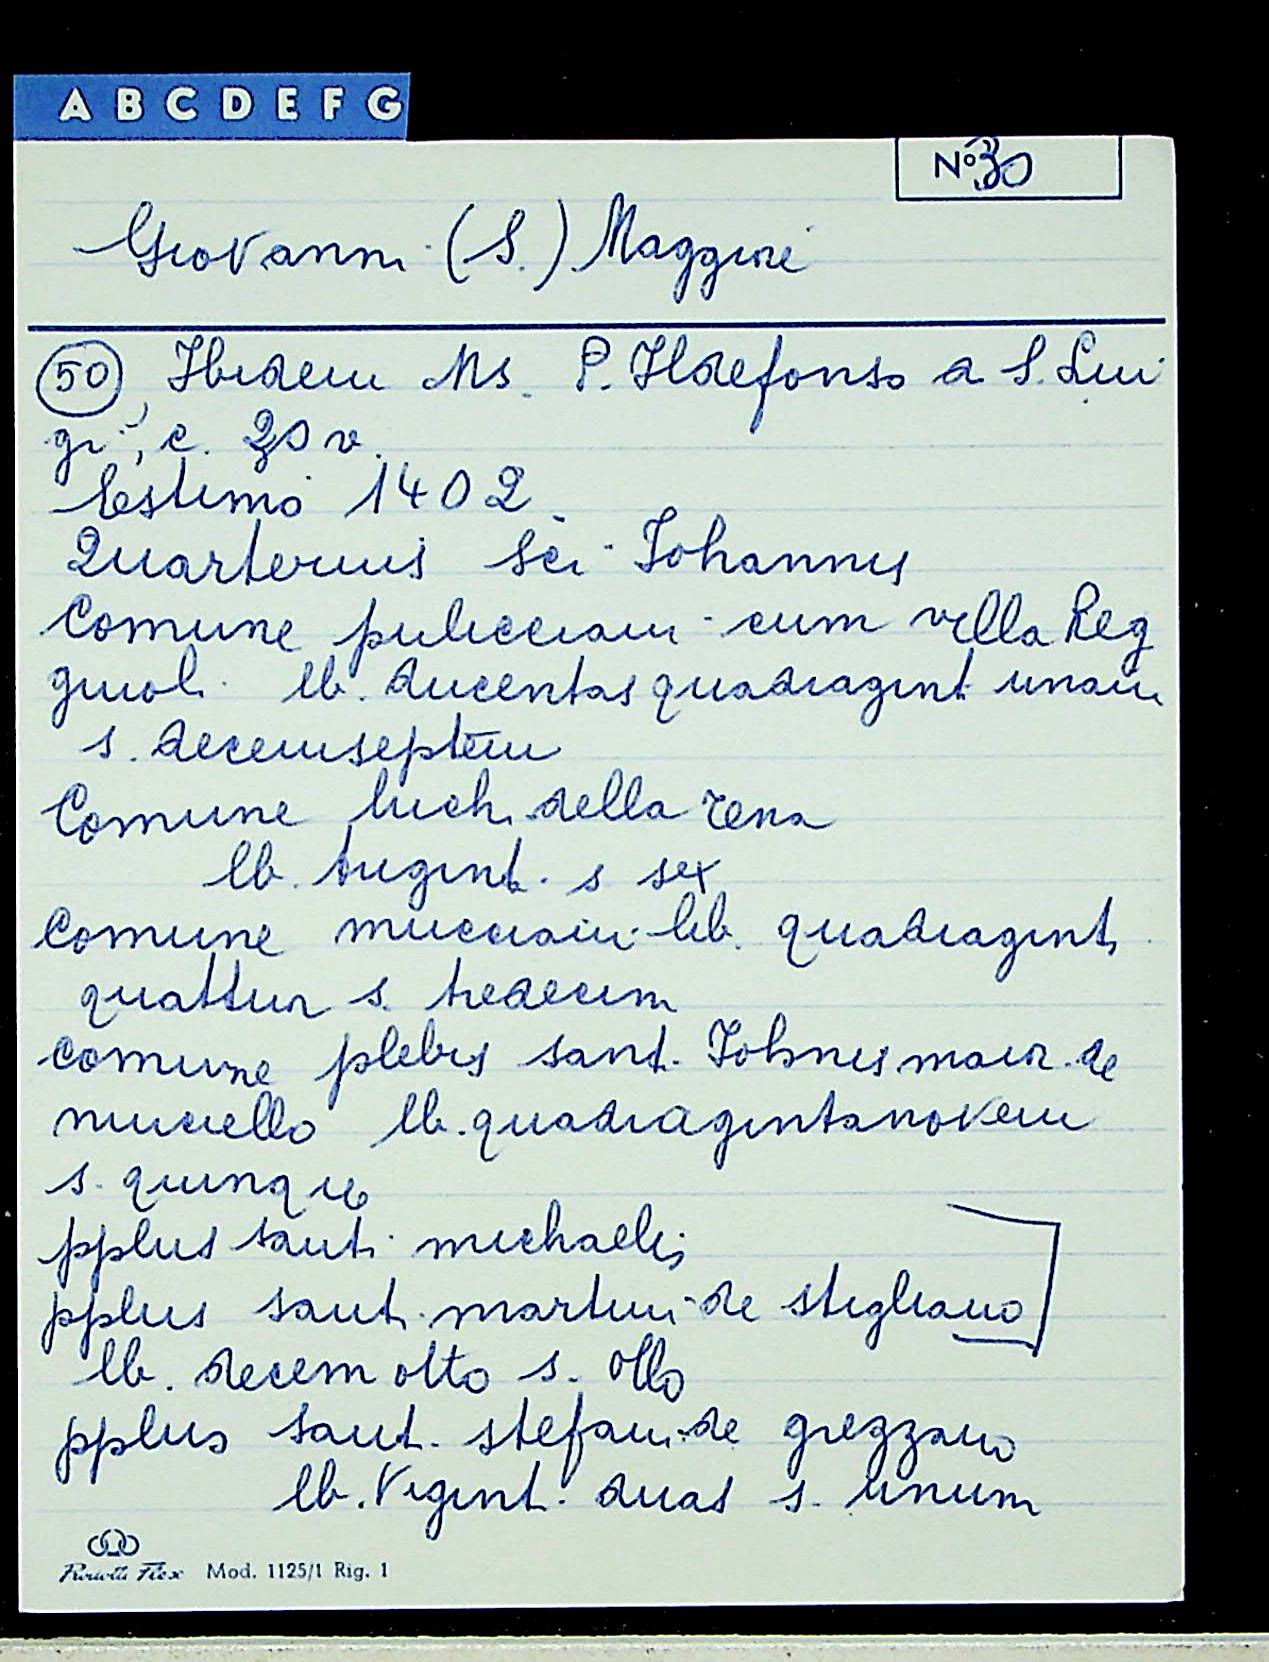 A B C D E F G
N° 30
Giovanni (S.) Maggiore
50 Ibidem Ms. P. Ildefonso a S. Lui
gi, c. 20 v.
Estimo 1402
Quarternus sci Iohannis
Comune pulicciani cum villa Reg
giuol. lb. ducentas quadragint unam
s. decemseptem
Comune luch. della rena
lb. trigint. s sex
Comune mucciani lib. quadragint
quattuor s. tredecim
comune plebis sant. Iohnis maior. de
muciello lb. quadragintanovem
s. quinque
pplus sant. michaelis
pplus sant. martini de stigliano
lb. decem otto s. otto
pplus sant. stefani de grezzano
lb. Vigint. duas s. unum
Mod. 1125/1 Rig. 1